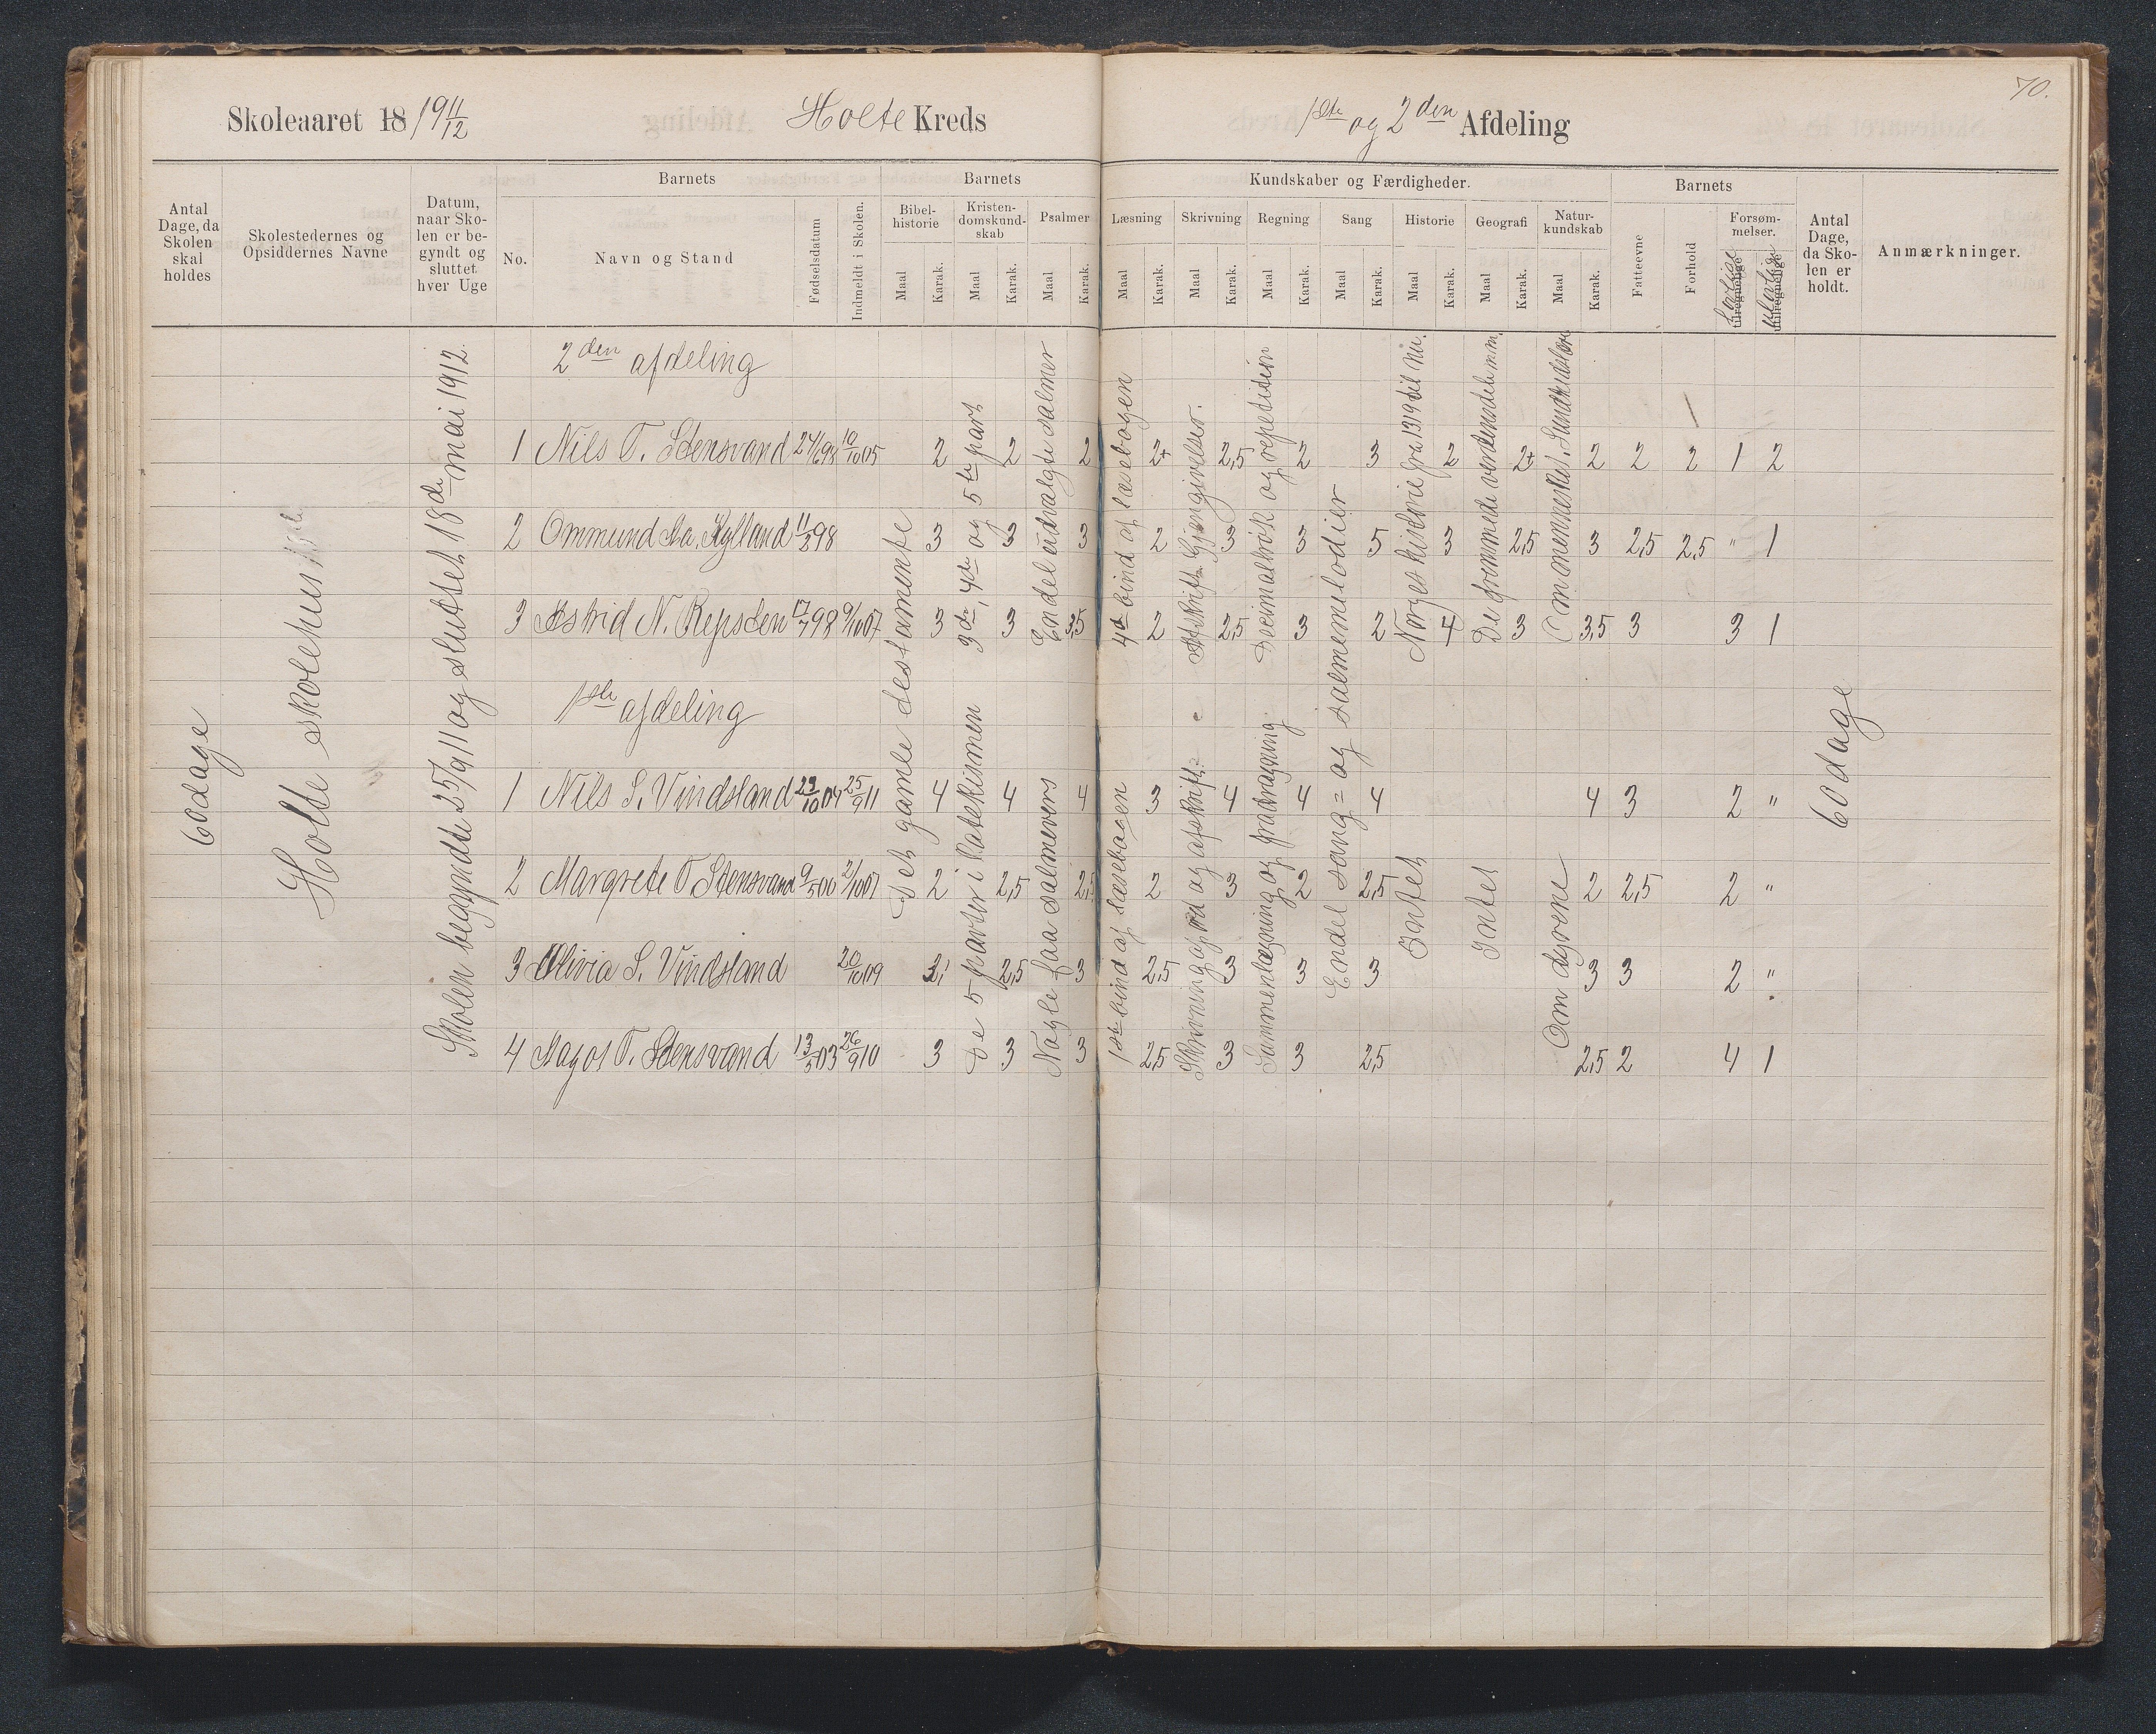 70.
Skoleaaret 18/1911/12 Holte Kreds 1ste og 2den Afdeling
Antal Dage, da Skolen skal holdes
Skolestedernes og Opsiddernes Navne
Datum, naar Skolen er begyndt og sluttet hver Uge
Barnets
No.
Navn og Stand
Fødselsdatum
Indmeldt i Skolen.
Barnets Kundskaber og Færdigheder.
Bibelhistorie Maal Karak.
Kristendomskundskab Maal Karak.
Psalmer Maal Karak.
Læsning Maal Karak.
Skrivning Maal Karak.
Regning Maal Karak.
Sang Maal Karak.
Historie Maal Karak.
Geografi Maal Karak.
Naturkundskab Maal Karak.
Barnets
Fatteevne
Forhold
Forsømmelser.
lovlige
ulovlige
Antal Dage, da Skolen er holdt.
Anmærkninger.
60 dage
Holte skolehus
Skolen begyndte 25/9 11 og sluttet 18de mai 1912.
2den afdeling
1 Nils T. Stensvand 24/6 98 10/10 05 2 2 2 2+ 2,5 2 3 2 2+ 2 2 2 1 2
2 Ommund Aa. Kylland 11/3 98 3 3 3 2 3 3 5 3 2,5 3 2,5 2,5 " 1
3 Astrid N. Repsten 17/7 98 9/10 07 3 3 3,5 2 2,5 3 2 4 3 3,5 3 3 1
1ste afdeling
1 Nils S. Vindsland 23/10 04 25/9 11 4 4 4 3 4 4 4 4 3 2 "
2 Margrete T. Stensvand 9/5 00 2/10 07 2 2,5 2,5 2 3 2 2,5 2 2,5 2 "
3 Olivia S. Vindsland 20/10 09 2,5 3 2,5 3 3 3 3 3 2 "
4 Aagot T. Stensvand 13/5 03 26/9 10 3 3 3 2,5 3 3 2,5 2,5 2 4 1
Det gamle testamente
3die, 4de og 5te part
De 5 parter i katekismen
Endel udvalgte salmer
Nogle faa salmevers
4de bind af læsebogen
1ste bind af læsebogen
Afskrift = Gjengivelser.
Skrivning af ord og afskrift =
Decimalbrøk og repetition
Sammenlægning og fradragning
Endel sang = og salmemelodier
Norges historie fra 1319 til nu.
Intet
De fremmede verdensdele m.m.
Intet
Om mennesket. Sundhedslære
Om dyrene
60 dage